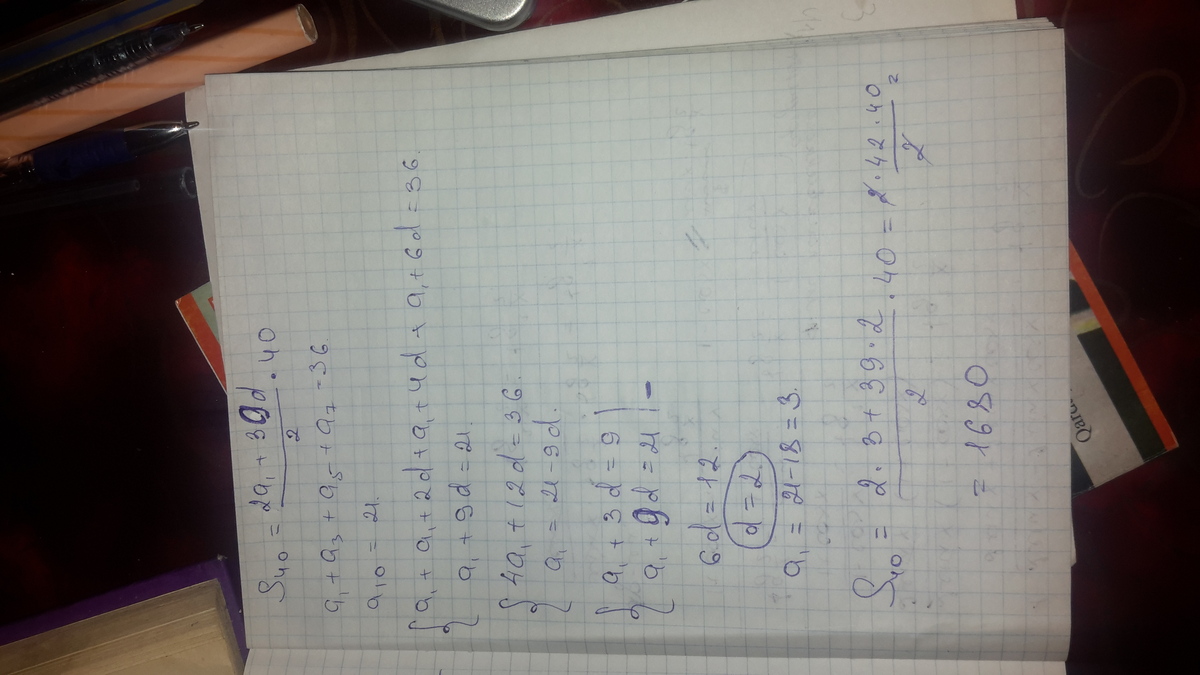 S₄₀ = (2a₁ + 39d)/2 · 40
a₁ + a₃ + a₅ + a₇ = 36.
a₁₀ = 21.
{ a₁ + a₁ + 2d + a₁ + 4d + a₁ + 6d = 36.
a₁ + 9d = 21.
{ 4a₁ + 12d = 36.
a₁ = 21 - 9d.
{ a₁ + 3d = 9 |
a₁ + 9d = 21 | -
6d = 12.
d = 2.
a₁ = 21 - 18 = 3.
S₄₀ = (2 · 3 + 39 · 2)/2 · 40 = (2 · 42 · 40)/2 =
= 1680